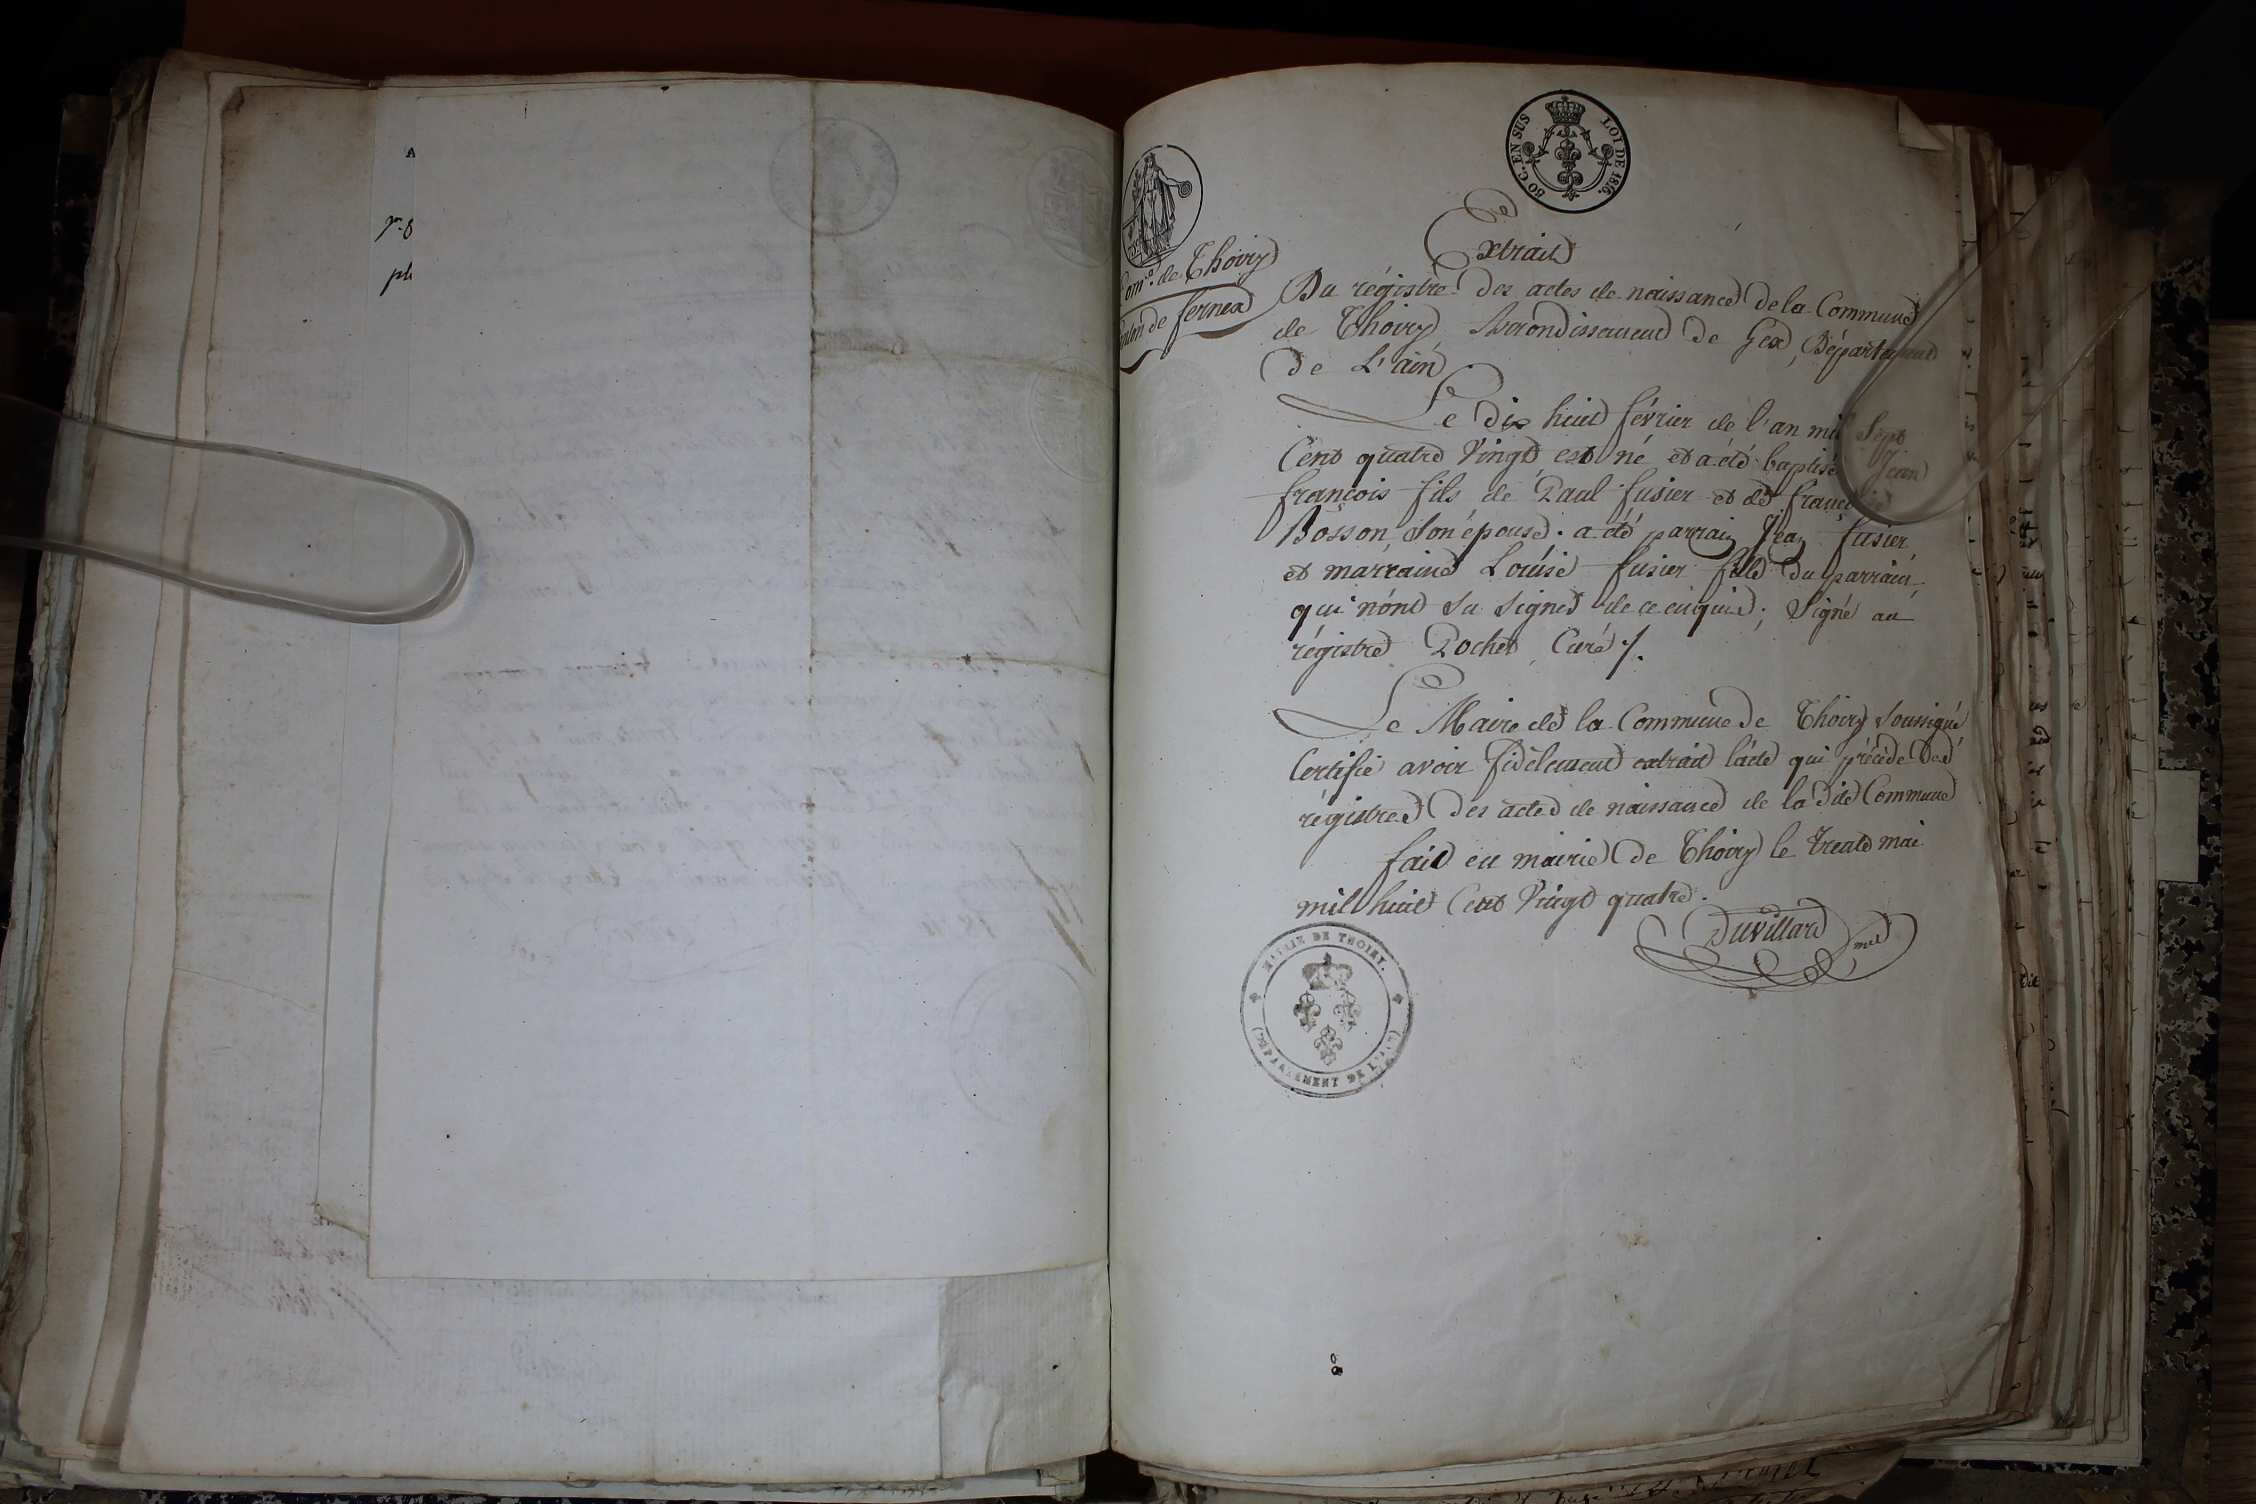 50 C. EN SUS
LOI DE 1816.
Com.e de Thoiry
canton de fernex
Extrait
Du régistre des actes de naissance de la Commune
de Thoiry Arrondissement de Gex, Département
de L'ain
Le dix huit février de l'an mil Sept
Cent quatre Vingt est né et a été baptisé Jean
françois fils de Paul fusier et de françoise
Bosson Son épouse. a été parrain Jean fusier
et marraine Louise fusier fille du parrain
qui n'ont su signer de ce enquis; Signé au
régistre Pochet Curé /.
Le Maire de la Commune de Thoiry Soussigné
Certifie avoir fidèlement extrait l'acte qui précède des
régistres des actes de naissance de la dite Commune
fait en mairie de Thoiry le trente mai
mil huit Cent Vingt quatre.
Duvillard mre
MAIRIE DE THOIRY.
(DÉPARTEMENT DE L'AIN.)